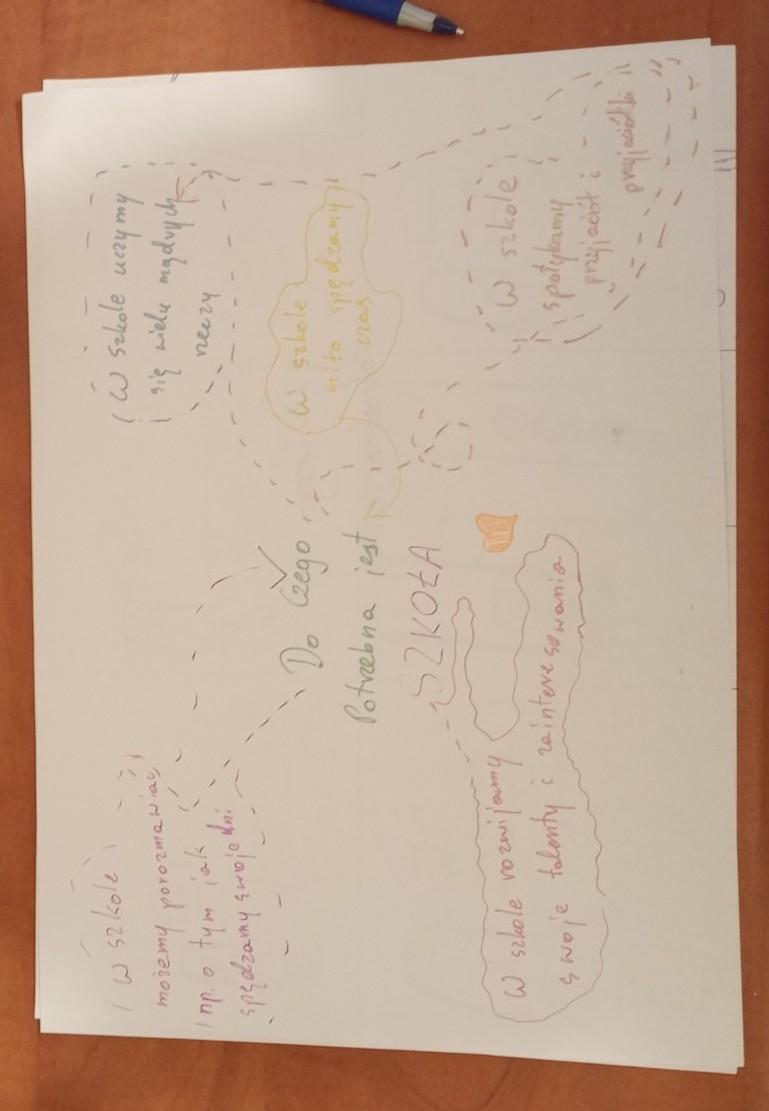 Do czego
Potrzebna jest
SZKOŁA
W szkole
możemy porozmawiać
np. o tym jak
spędzamy swoje dni
W szkole uczymy
się wielu mądrych
rzeczy
W szkole
miło spędzamy
czas
W szkole
spotykamy
przyjaciół i
przyjaciółki
W szkole rozwijamy
swoje talenty i zainteresowania